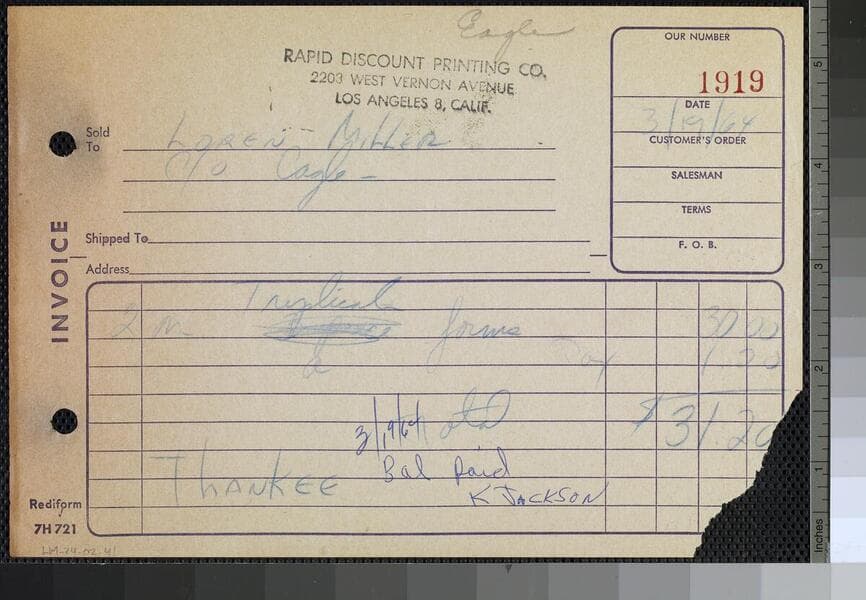 Eagle
RAPID DISCOUNT PRINTING CO.
2203 WEST VERNON AVENUE
LOS ANGELES 8, CALIF.
OUR NUMBER
1919
DATE
3/19/64
CUSTOMER'S ORDER
SALESMAN
TERMS
F. O. B.
Sold
To LOREN MILLER
c/o Eagle
Shipped To
Address
INVOICE
Triplicate
2 M forms 30 00
Tax 1.20
Total $31.20
3/19/64
Bal Paid
THANKEE
K JACKSON
Rediform
7H 721
LM-24-02-41
5
4
3
2
1
Inches